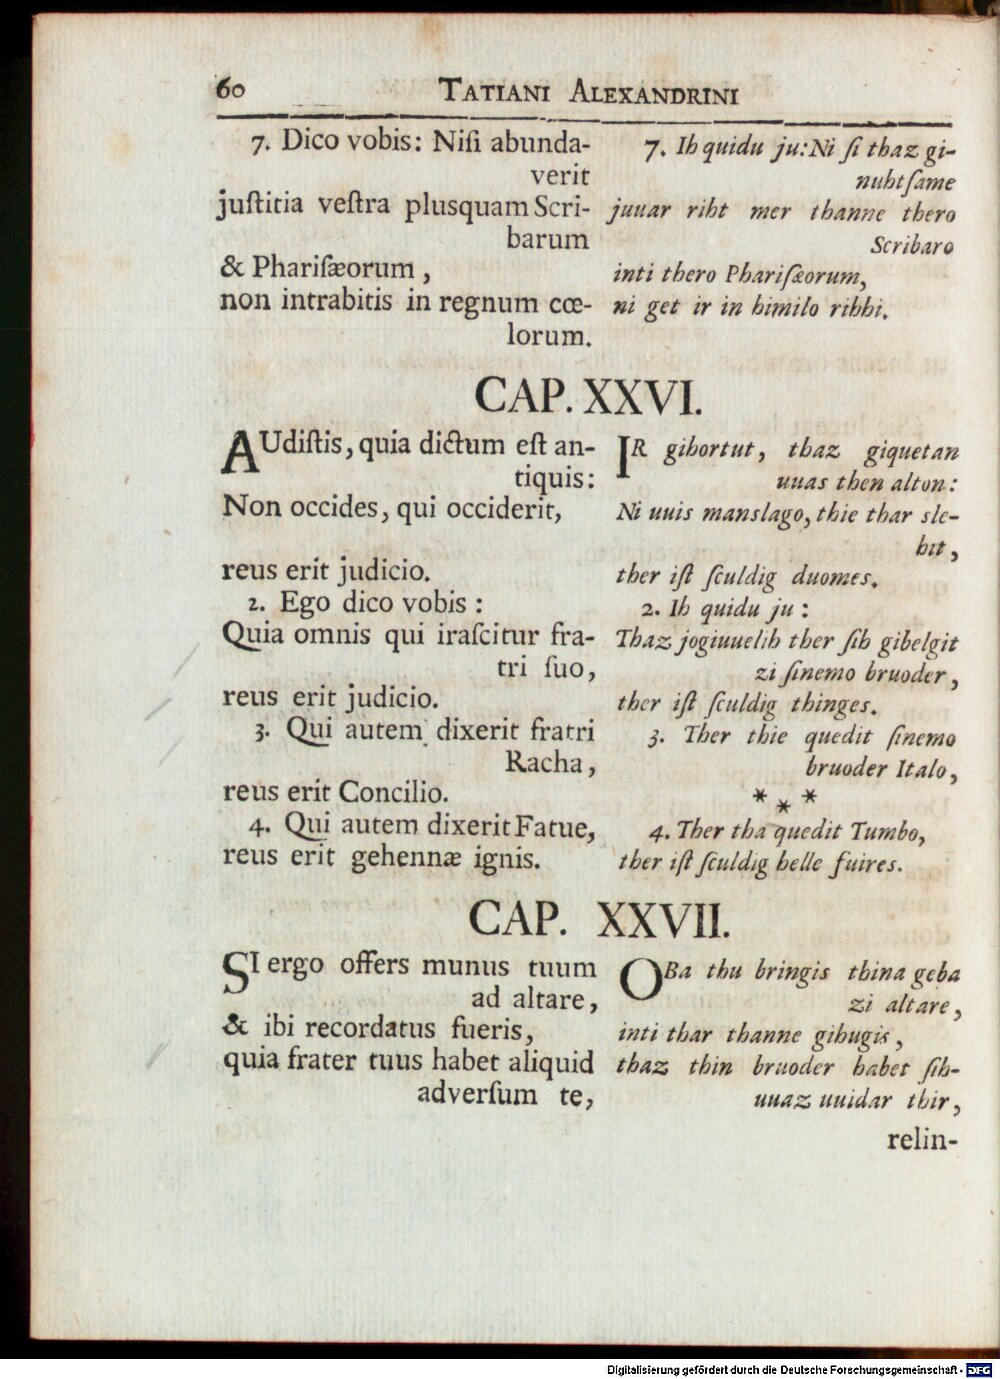 60 TATIANI ALEXANDRINI
7. Dico vobis: Niſi abunda-
verit
juſtitia veſtra plusquam Scri-
barum
& Phariſæorum,
non intrabitis in regnum cœ-
lorum.
7. Ih quidu ju: Ni ſi thaz gi-
nuhtſame
juuar riht mer thanne thero
Scribaro
inti thero Phariſæorum,
ni get ir in himilo rihhi.
CAP. XXVI.
AUdiſtis, quia dictum eſt an-
tiquis:
Non occides, qui occiderit,
reus erit judicio.
2. Ego dico vobis:
Quia omnis qui iraſcitur fra-
tri ſuo,
reus erit judicio.
3. Qui autem dixerit fratri
Racha,
reus erit Concilio.
4. Qui autem dixerit Fatue,
reus erit gehennæ ignis.
IR gihortut, thaz giquetan
uuas then alton:
Ni uuis manslago, thie thar sle-
hit,
ther iſt ſculdig duomes.
2. Ih quidu ju:
Thaz jogiuuelih ther ſih gibelgit
zi ſinemo bruoder,
ther iſt ſculdig thinges.
3. Ther thie quedit ſinemo
bruoder Italo,
* * *
4. Ther tha quedit Tumbo,
ther iſt ſculdig helle fuires.
CAP. XXVII.
SI ergo offers munus tuum
ad altare,
& ibi recordatus fueris,
quia frater tuus habet aliquid
adverſum te,
OBa thu bringis thina geba
zi altare,
inti thar thanne gihugis,
thaz thin bruoder habet ſih-
uuaz uuidar thir,
relin-
Digitalisierung gefördert durch die Deutsche Forschungsgemeinschaft - DFG